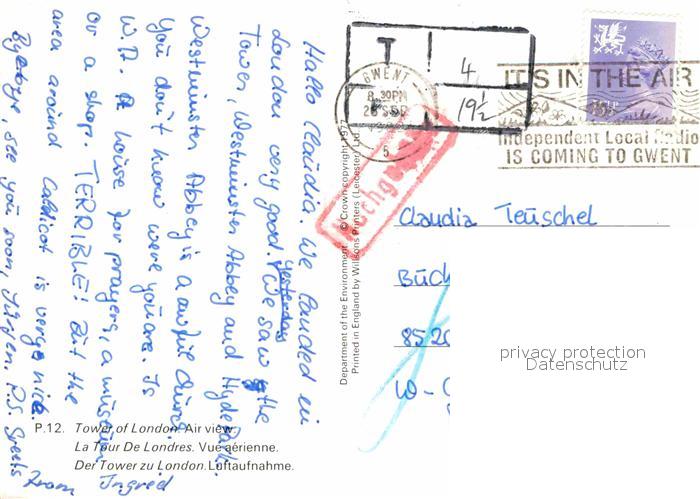 Hallo Claudia. We landed in
London very good. Yesterday We saw the
Tower, Westminster Abbey and Hyde Park.
Westminster Abbey is a awful thing.
You don't know were you are. Is
W.A. a house for prayers, a museum
or a shop. TERRIBLE! But the
area around Caldicot is very nice.
Byebye, see you soon, P.S. Greets
from Ingrid
P.12. Tower of London. Air view.
La Tour De Londres. Vue aérienne.
Der Tower zu London. Luftaufnahme.
Department of the Environment © Crown copyright 1977
Printed in England by Willsons Printers (Leicester) Ltd.
T 4
19½
GWENT
8.30PM
5
Nachgebühr
IT'S IN THE AIR
Independent Local Radio
IS COMING TO GWENT
Claudia Teuschel
Büch
8520
W-
privacy protection
Datenschutz